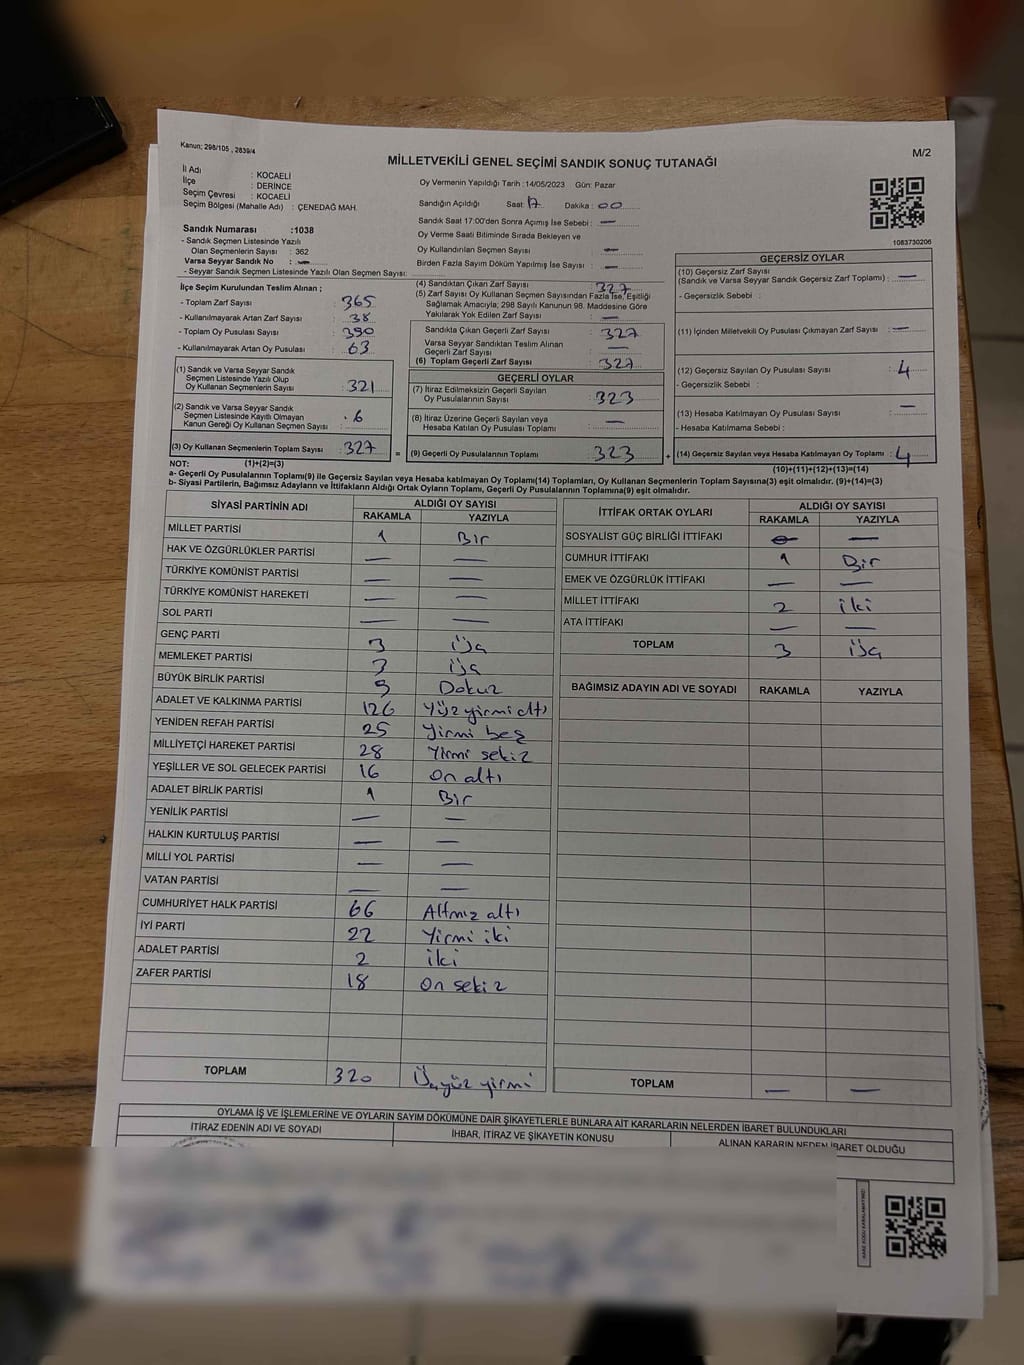 Kanun; 298/105 , 2839/4
M/2
MİLLETVEKİLİ GENEL SEÇİMİ SANDIK SONUÇ TUTANAĞI
İl Adı : KOCAELİ
İlçe : DERİNCE
Seçim Çevresi : KOCAELİ
Seçim Bölgesi (Mahalle Adı) : ÇENEDAĞ MAH.
Oy Vermenin Yapıldığı Tarih :14/05/2023 Gün: Pazar
Sandığın Açıldığı Saat: 17 Dakika : 00
Sandık Saat 17:00'den Sonra Açımış İse Sebebi : —
Oy Verme Saati Bitiminde Sırada Bekleyen ve
Oy Kullandırılan Seçmen Sayısı : —
Birden Fazla Sayım Döküm Yapılmış İse Sayısı : —
1083730206
Sandık Numarası :1038
- Sandık Seçmen Listesinde Yazılı
Olan Seçmenlerin Sayısı : 362
Varsa Seyyar Sandık No : —
- Seyyar Sandık Seçmen Listesinde Yazılı Olan Seçmen Sayısı:
İlçe Seçim Kurulundan Teslim Alınan ;
- Toplam Zarf Sayısı : 365
- Kullanılmayarak Artan Zarf Sayısı : 38
- Toplam Oy Pusulası Sayısı : 390
- Kullanılmayarak Artan Oy Pusulası : 63
(1) Sandık ve Varsa Seyyar Sandık
Seçmen Listesinde Yazılı Olup
Oy Kullanan Seçmenlerin Sayısı : 321
(2) Sandık ve Varsa Seyyar Sandık
Seçmen Listesinde Kayıtlı Olmayan
Kanun Gereği Oy Kullanan Seçmen Sayısı : 6
(3) Oy Kullanan Seçmenlerin Toplam Sayısı : 327
(4) Sandıktan Çıkan Zarf Sayısı : 327
(5) Zarf Sayısı Oy Kullanan Seçmen Sayısından Fazla İse, Eşitliği
Sağlamak Amacıyla; 298 Sayılı Kanunun 98. Maddesine Göre
Yakılarak Yok Edilen Zarf Sayısı : —
Sandıkta Çıkan Geçerli Zarf Sayısı : 327
Varsa Seyyar Sandıktan Teslim Alınan
Geçerli Zarf Sayısı : —
(6) Toplam Geçerli Zarf Sayısı : 327
GEÇERLİ OYLAR
(7) İtiraz Edilmeksizin Geçerli Sayılan
Oy Pusulasının Sayısı : 323
(8) İtiraz Üzerine Geçerli Sayılan veya
Hesaba Katılan Oy Pusulası Toplamı : —
= (9) Geçerli Oy Pusulalarının Toplamı : 323 +
GEÇERSİZ OYLAR
(10) Geçersiz Zarf Sayısı
(Sandık ve Varsa Seyyar Sandık Geçersiz Zarf Toplamı) : —
- Geçersizlik Sebebi :
(11) İçinden Milletvekili Oy Pusulası Çıkmayan Zarf Sayısı : —
(12) Geçersiz Sayılan Oy Pusulası Sayısı : 4
- Geçersizlik Sebebi :
(13) Hesaba Katılmayan Oy Pusulası Sayısı : —
- Hesaba Katılmama Sebebi :
(14) Geçersiz Sayılan veya Hesaba Katılmayan Oy Toplamı : 4
NOT: (1)+(2)=(3) (10)+(11)+(12)+(13)=(14)
a- Geçerli Oy Pusulalarının Toplamı(9) ile Geçersiz Sayılan veya Hesaba katılmayan Oy Toplamı(14) Toplamları, Oy Kullanan Seçmenlerin Toplam Sayısına(3) eşit olmalıdır. (9)+(14)=(3)
b- Siyasi Partilerin, Bağımsız Adayların ve İttifakların Aldığı Ortak Oyların Toplamı, Geçerli Oy Pusulalarının Toplamına(9) eşit olmalıdır.
SİYASİ PARTİNİN ADI ALDIĞI OY SAYISI
RAKAMLA YAZIYLA
MİLLET PARTİSİ 1 Bir
HAK VE ÖZGÜRLÜKLER PARTİSİ — —
TÜRKİYE KOMÜNİST PARTİSİ — —
TÜRKİYE KOMÜNİST HAREKETİ — —
SOL PARTİ — —
GENÇ PARTİ 3 üç
MEMLEKET PARTİSİ 3 üç
BÜYÜK BİRLİK PARTİSİ 9 Dokuz
ADALET VE KALKINMA PARTİSİ 126 Yüz yirmi altı
YENİDEN REFAH PARTİSİ 25 Yirmi beş
MİLLİYETÇİ HAREKET PARTİSİ 28 Yirmi sekiz
YEŞİLLER VE SOL GELECEK PARTİSİ 16 on altı
ADALET BİRLİK PARTİSİ 1 Bir
YENİLİK PARTİSİ — —
HALKIN KURTULUŞ PARTİSİ — —
MİLLİ YOL PARTİSİ — —
VATAN PARTİSİ — —
CUMHURİYET HALK PARTİSİ 66 Altmız altı
İYİ PARTİ 22 Yirmi iki
ADALET PARTİSİ 2 iki
ZAFER PARTİSİ 18 on sekiz
TOPLAM 320 Üçyüz yirmi
İTTİFAK ORTAK OYLARI ALDIĞI OY SAYISI
RAKAMLA YAZIYLA
SOSYALİST GÜÇ BİRLİĞİ İTTİFAKI — —
CUMHUR İTTİFAKI 1 Bir
EMEK VE ÖZGÜRLÜK İTTİFAKI — —
MİLLET İTTİFAKI 2 iki
ATA İTTİFAKI — —
TOPLAM 3 üç
BAĞIMSIZ ADAYIN ADI VE SOYADI RAKAMLA YAZIYLA
TOPLAM — —
OYLAMA İŞ VE İŞLEMLERİNE VE OYLARIN SAYIM DÖKÜMÜNE DAİR ŞİKAYETLERLE BUNLARA AİT KARARLARIN NELERDEN İBARET BULUNDUKLARI
İTİRAZ EDENİN ADI VE SOYADI İHBAR, İTİRAZ VE ŞİKAYETİN KONUSU ALINAN KARARIN NEDEN İBARET OLDUĞU